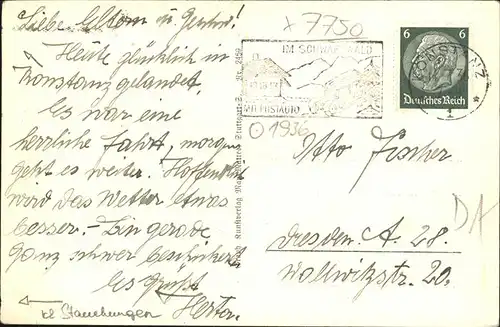 Liebe Eltern u. Geschw!
Heute glücklich in
Konstanz gelandet.
Es war eine
herrliche Fahrt, morgen
geht es weiter. Hoffentlich
wird das Wetter etwas
besser. – Bin gerade
ganz schwer beschäftigt.
Es grüßt
Herta.
kl Stauchungen
x 7750
IM SCHWARZWALD
MIT POSTAUTO
O 1936
6 6
Deutsches Reich
KONSTANZ
1
Otto Fischer
Dresden. A. 28.
Wallwitzstr. 20.
DA